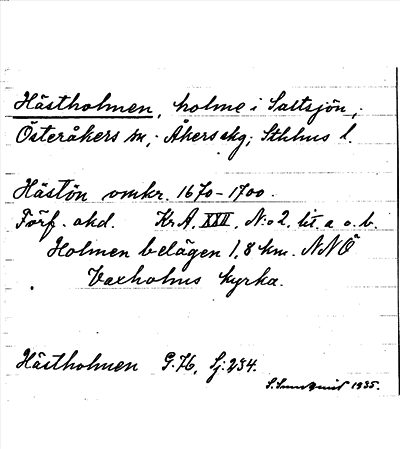 Hästholmen, holme i Saltsjön,
Österåkers sn, Åkers skg; Sthlms l.
Hästön omkr. 1670-1700.
Förf. okd. Kr.A. XXII, N:o 2, lit. a o. b.
Holmen belägen 1,8 km. NNÖ
Vaxholms kyrka.
Hästholmen G. 76, Sj. 234.
1935.